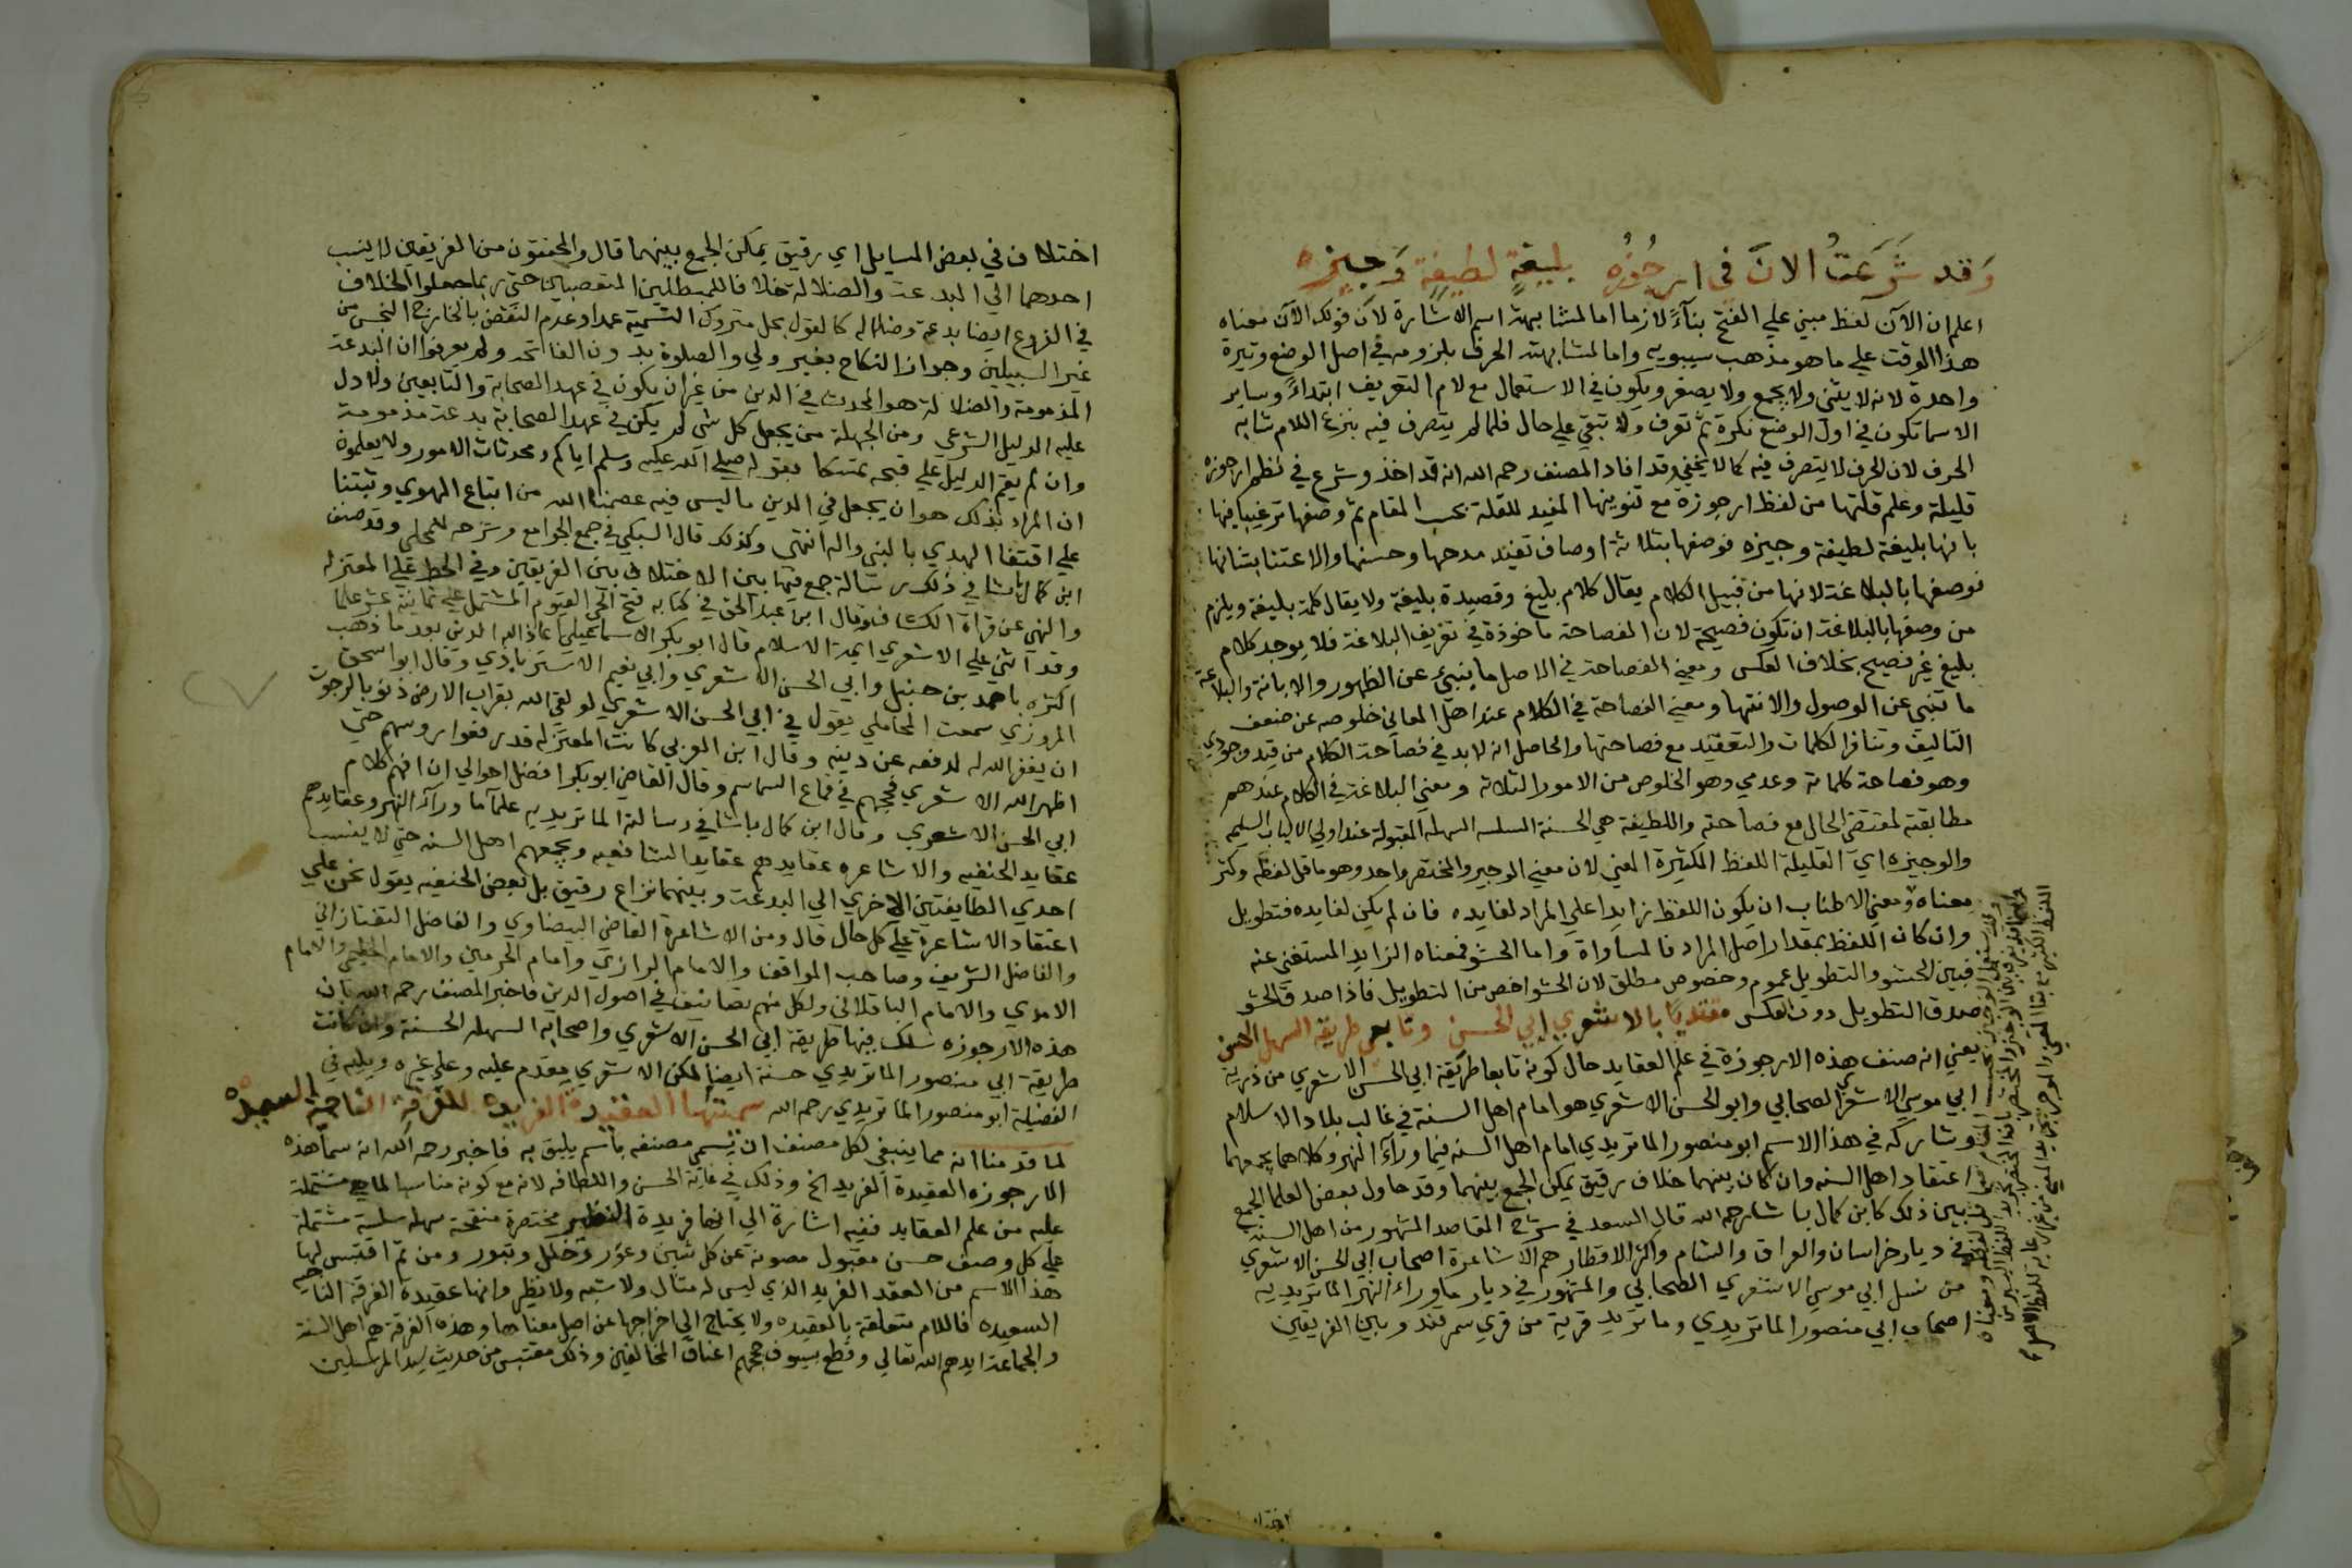 وَقد شَرَعَتُ الانَ في ارجُوُزة بليغةٍ لطيفةٍ وَجيزه
اعلم ان الآن لفظ مبني علي الفتح بناءً لازما اما لمشابهته اسم الاشارة لان قولك الآن معناه
هذا الوقت علي ما هو مذهب سيبويه واما لمشابهته الحرف بلزومه في اصل الوضع وتيرة
واحدة لانه لا يثني ولا يجمع ولا يصغر ويكون في الاستعمال مع لام التعريف ابتداءً وساير
الاسما تكون في اول الوضع نكرة ثم تعرف ولا تبقي علي حال فلما لم يتصرف فيه بنزع اللام شابه
الحرف لان الحرف لا يتصرف فيه كما لا يخفي وقد افاد المصنف رحمه الله انه قد اخذ وشرع في نظم ارجوزة
قليلة وعلم قلتها من لفظ ارجوزة مع تنوينها المفيد للقلة بحسب المقام ثم وصفها ترغيبا فيها
بانها بليغة لطيفة وجيزه فوصفها بثلاثة اوصاف تفيد مدحها وحسنها والاعتنا بشانها
فوصفها بالبلاغة لانها من قبيل الكلام يقال كلام بليغ وقصيدة بليغة ولا يقال كلمة بليغة ويلزم
من وصفها بالبلاغة ان تكون فصيحة لان الفصاحة ماخوذة في تعريف البلاغة فلا يوجد كلام
بليغ غير فصيح بخلاف العكس ومعني الفصاحة في الاصل ما ينبئ عن الظهور والابانة والبلاغة
ما تنبي عن الوصول والانتها ومعني الفصاحة في الكلام عند اهل المعاني خلوصه عن ضعف
التاليف وتنافر الكلمات والتعقيد مع فصاحتها والحاصل انه لا بد في فصاحة الكلام من قيد وجودي
وهو فصاحة كلماته وعدمي وهو الخلوص من الامور الثلاثة ومعني البلاغة في الكلام عندهم
مطابقته لمقتضي الحال مع فصاحته واللطيفة هي الحسنة السلسه السهله المقبولة عند اولي الالباب السليمه
والوجيزه اي القليلة اللفظ الكثيرة المعني لان معني الوجيز والمختصر واحد وهو ما قل لفظه وكثر
معناه ومعني الاطناب ان يكون اللفظ زايدا علي المراد لفايده فان لم يكن لفايده فتطويل
وان كان اللفظ بمقدار اصل المراد فالمساواة واما الحشو فمعناه الزايد المستغني عنه
فبين الحشو والتطويل عموم وخصوص مطلق لان الحشو اخص من التطويل فاذا صدق الحشو
صدق التطويل دون العكس مقتديًا بالاشعري ابي الحسن وتابعي طريقه السهل الحسن
يعني انه صنف هذه الارجوزة في علم العقايد حال كونه تابعا طريقة ابي الحسن الاشعري من ذرية
ابي موسي الاشعري الصحابي وابو الحسن الاشعري هو امام اهل السنة في غالب بلاد الاسلام
وشاركه في هذا الاسم ابو منصور الماتريدي امام اهل السنه فيما وراء النهر وكلاهما يجمعهما
اعتقاد اهل السنه وان كان بينهما خلاف رقيق يمكن الجمع بينهما وقد حاول بعض العلما الجمع
بين ذلك كابن كمال باشا رحمه الله قال السعد في شرح المقاصد المشهور من اهل السنه
في ديار خراسان والعراق والشام واكثر الاقطار هم الاشاعرة اصحاب ابي الحسن الاشعري
من نسل ابي موسي الاشعري الصحابي والمشهور في ديار ماوراء النهر الماتريديه
اصحاب ابي منصور الماتريدي وماتريد قرية من قري سمرقند وبين الفريقين
اختلاف في بعض المسايل اي رقيق يمكن الجمع بينهما قال والمحققون من الفريقين لا ينسب
احدهما الي البدعة والضلالة خلافا للمبطلين المتعصبين حتي ربما جعلوا الخلاف
في الفروع ايضا بدعة وضلاله كالقول بحل متروك التسمية عمدا وعدم النقض بالخارج النجس من
غير السبيلين وجواز النكاح بغير ولي والصلوة بدون الفاتحه ولم يعرفوا ان البدعة
المذمومة والضلالة هو المحدث في الدين من غير ان يكون في عهد الصحابة والتابعين ولا دل
عليه الدليل الشرعي ومن الجهلة من يجعل كل شي لم يكن في عهد الصحابة بدعة مذمومة
وان لم يقم الدليل علي قبحه تمسكا بقوله صلي الله عليه وسلم اياكم ومحدثات الامور ولا يعلمون
ان المراد بذلك هو ان يجعل في الدين ما ليس فيه عصمنا الله من اتباع الهوي وثبتنا
علي اقتفا الهدي بالنبي واله انتهي وكذلك قال السبكي في جمع الجوامع وشرحه للمحلي وقد صنف
ابن كمال باشا في ذلك رسالة جمع فيها بين الاختلاف بين الفريقين وفي الحط علي المعتزله
والنهي عن قراة الكشاف وقال ابن عبد الحق في كتابه فتح الحي القيوم المشتمل علي ثمانية عشر علما
وقد اثني علي الاشعري ايمة الاسلام قال ابو بكر الاسماعيلي اعاذ الله الدين بعد ما ذهب
اكثره باحمد بن حنبل وابي الحسن الاشعري وابي نعيم الاستراباذي وقال ابو اسحق
المروزي سمعت المحاملي يقول في ابي الحسن الاشعري لو لقي الله بقراب الارض ذنوبا لرجوت
ان يغفر الله له لدفعه عن دينه وقال ابن العربي كانت المعتزله قد رفعوا روسهم حتي
اظهر الله الاشعري فحجهم في قماع السماسم وقال القاضي ابو بكر افضل احوالي ان افهم كلام
ابي الحسن الاشعري وقال ابن كمال باشا في رسالته الماتريديه علماء ما وراء النهر وعقايدهم
عقايد الحنفيه والاشاعره عقايدهم عقايد الشافعيه ويجمعهم اهل السنه حتي لا ينسب
احدي الطايفتين الاخري الي البدعة وبينهما نزاع رقيق بل بعض الحنفيه يقول نحن علي
اعتقاد الاشاعرة علي كل حال قال ومن الاشاعرة القاضي البيضاوي والفاضل التفتازاني
والفاضل الشريف وصاحب المواقف والامام الرازي وامام الحرمين والامام والامام
الامدي والامام الباقلاني ولكل منهم تصانيف في اصول الدين فاخبر المصنف رحمه الله بان
هذه الارجوزه سلك فيها طريقة ابي الحسن الاشعري واصحابه السهله الحسنة وان كانت
طريقة ابي منصور الماتريدي حسنة ايضا لكن الاشعري مقدم عليه وعلي غيره ويليه في
الفضيلة ابو منصور الماتريدي رحمه الله سميتها العقيدة الفريده للفرقة الناجية السعيدة
لما قدمنا انه مما ينبغي لكل مصنف ان يسمي مصنفه باسم يليق به فاخبر رحمه الله انه سما هذه
الارجوزه العقيدة الفريد الخ وذلك في غاية الحسن واللطافه لانه مع كونه مناسبا لما هي مشتملة
عليه من علم العقايد ففيه اشارة الي انها فريدة النظير مختصرة منقحة سهله سلسة مشتملة
علي كل وصف حسن مقبول مصونة عن كل شين وعور وخلل وتبور ومن ثم اقتبس لها
هذا الاسم من العقد الفريد الذي ليس له مثال ولا شبه ولا نظير وانها عقيدة الفرقة الناجيه
السعيده فاللام متعلقة بالعقيده ولا يحتاج الي اخراجها عن اصل معناها وهذه الفرقة هم اهل السنة
والجماعة ايدهم الله تعالي وقطع بسيوف حججهم اعناق المخالفين وذلك مقتبس من حديث سيد المرسلين